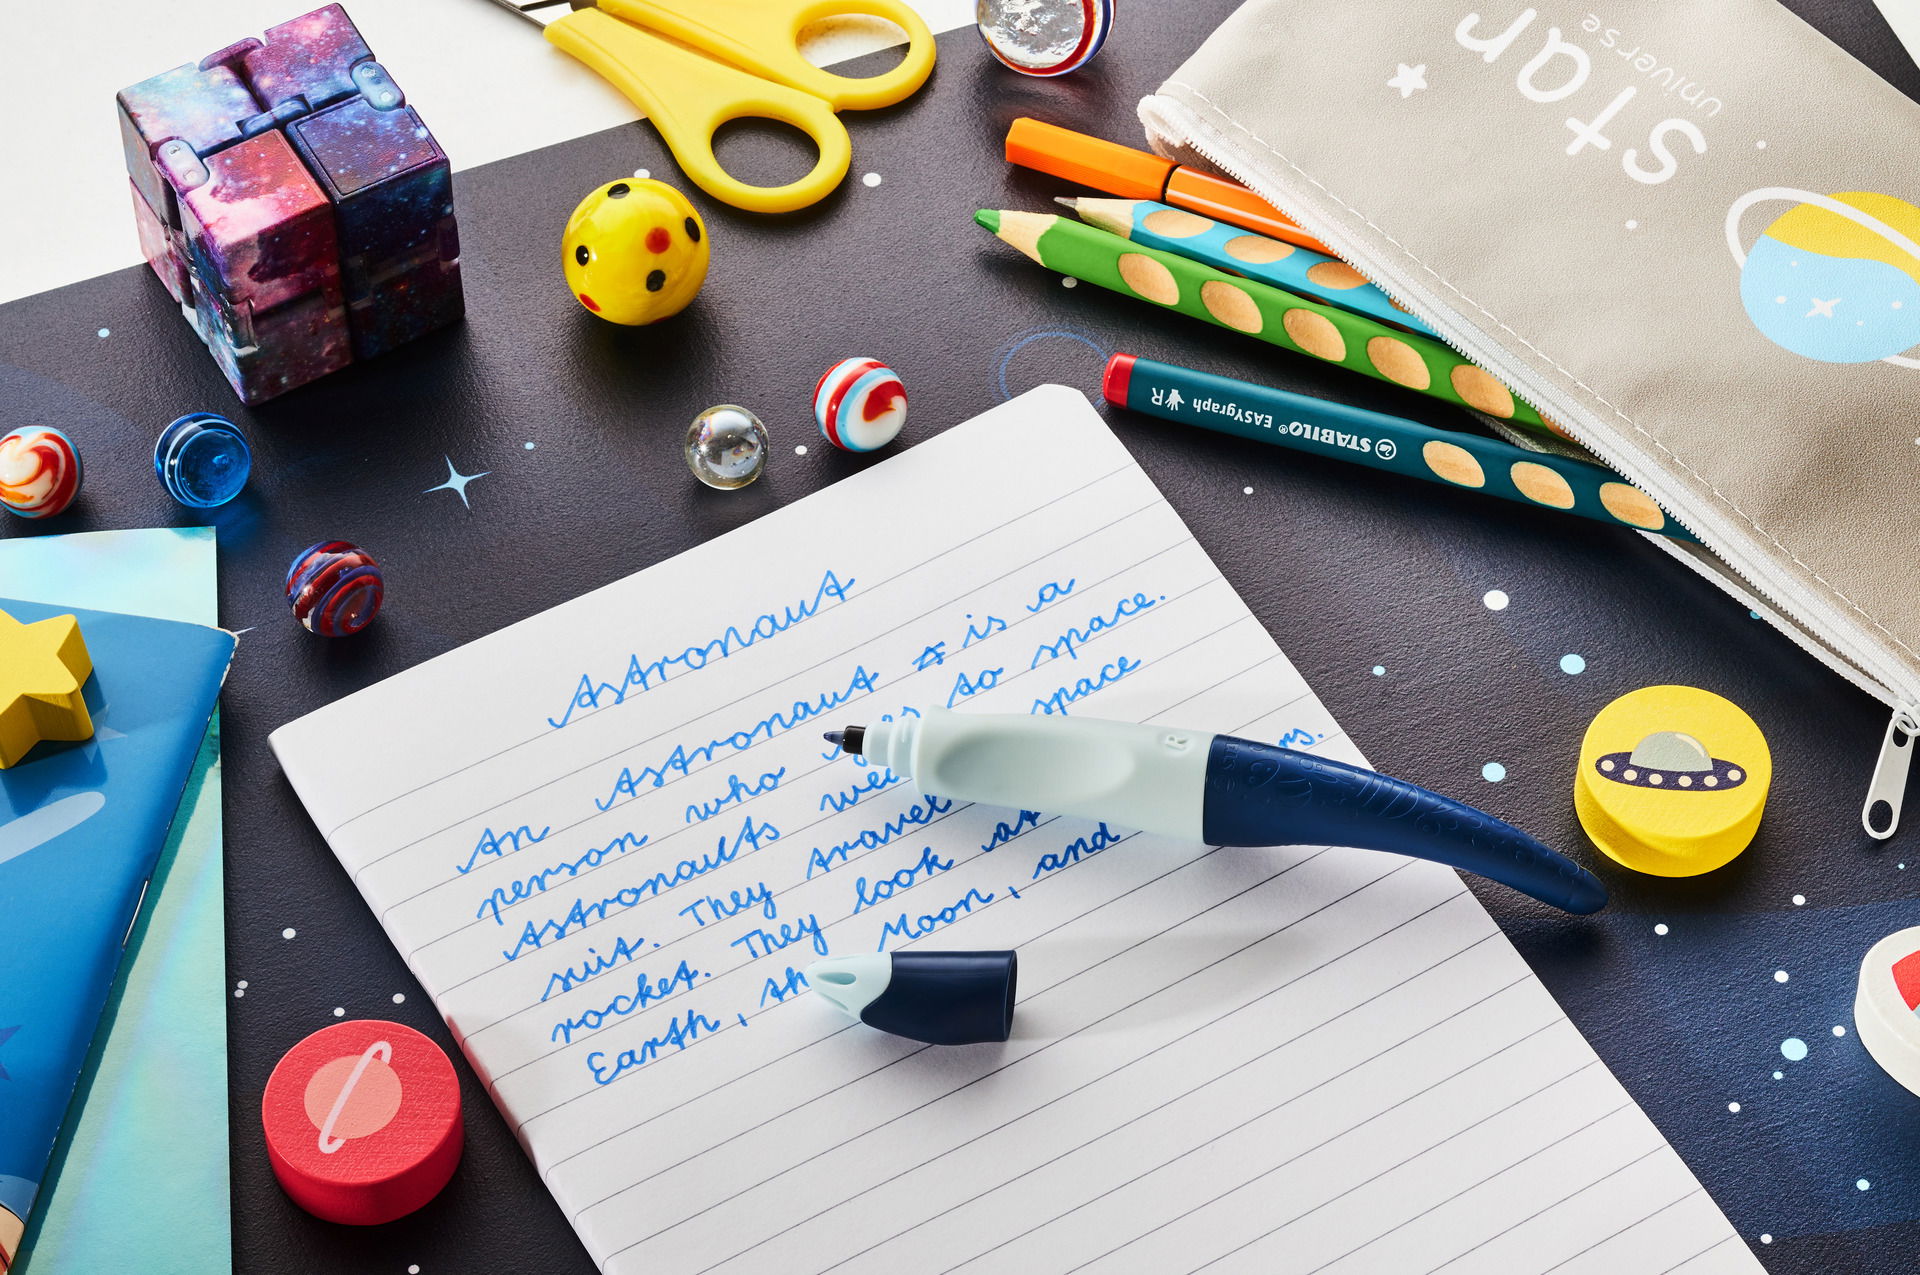 star
universe
STABILO® EASYgraph R
Astronaut
An Astronaut is a
person who goes to space.
Astronauts space
suit. They travel
rocket. They look at
Earth, Moon, and
R